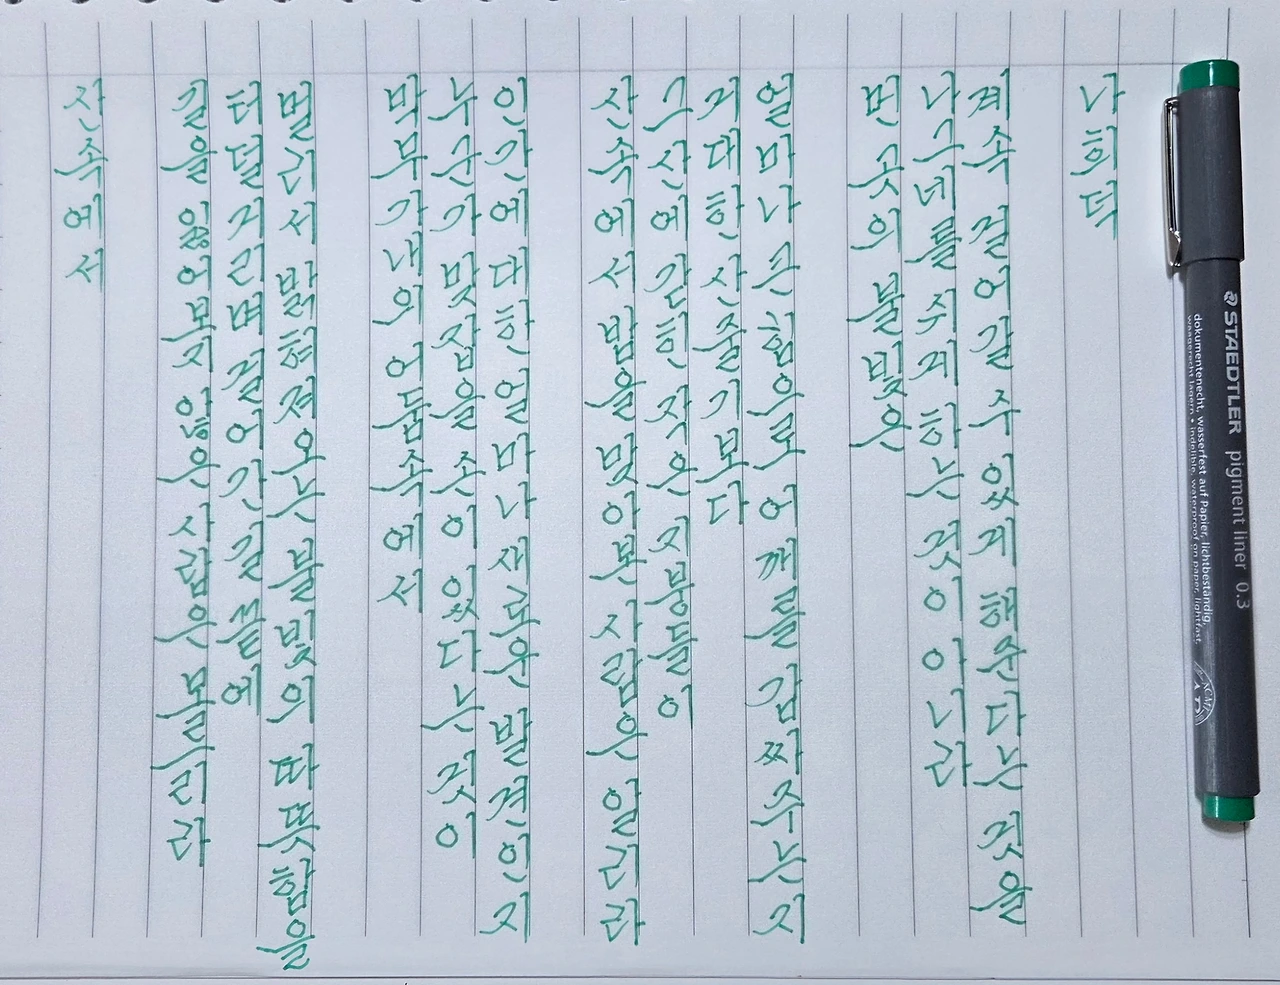 산속에서
길을 잃어보지 않은 사람은 모르리라
터덜거리며 걸어간 길 끝에
멀리서 밝혀져오는 불빛의 따뜻함을
막무가내의 어둠속에서
누군가 맞잡을 손이 있다는 것이
인간에 대한 얼마나 새로운 발견인지
산속에서 밤을 맞아본 사람은 알리라
그 산에 갇힌 작은 지붕들이
거대한 산줄기보다
얼마나 큰 힘으로 어깨를 감싸주는지
먼 곳의 불빛은
나그네를 쉬게 하는 것이 아니라
계속 걸어갈 수 있게 해준다는 것을
나희덕
STAEDTLER pigment liner 0.3
dokumentenecht, wasserfest auf Papier, lichtbeständig,
waagerecht lagern • indelible, waterproof on paper, lightfast,